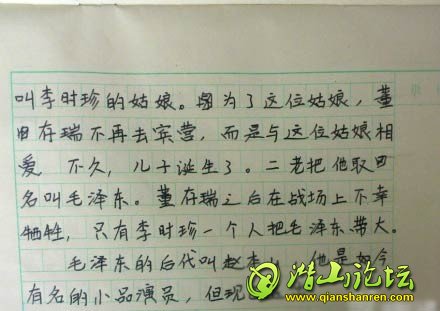 叫李时珍的姑娘。因为了这位姑娘，董
存瑞不再去宾营，而是与这位姑娘相
爱，不久，儿子诞生了。二老把他取
名叫毛泽东。董存瑞之后在战场上不幸
牺牲，只有李时珍一个人把毛泽东带大。
毛泽东的后代叫赵本山，他是如今
有名的小品演员，但现
潜山论坛
www.qianshanren.com